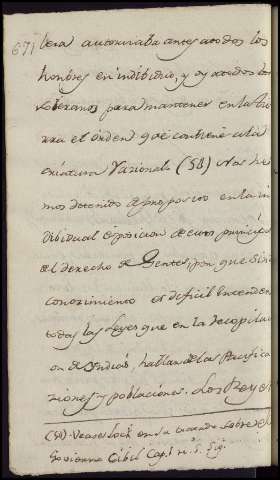 671
lera autorizaba antes atodos los
hombres en indibiduo, y oy atodos los
soberanos para mantener en la tie
rra el orden que combiene ala
criatura Racional (58) Nos he
mos detenido de proposito en la in
dibidual esposicion de estos principios
del derecho de Gentes, por que sin su
conocimiento es dificil entender
todas las Leyes que en la recopilaci
on de Yndias, hablan de las Pacifica
ziones y poblaciones. Los Reyes
(58) Vease Lock en su tratado sobre el
Govierno Cibil Cap. 1 n. 5. sig.